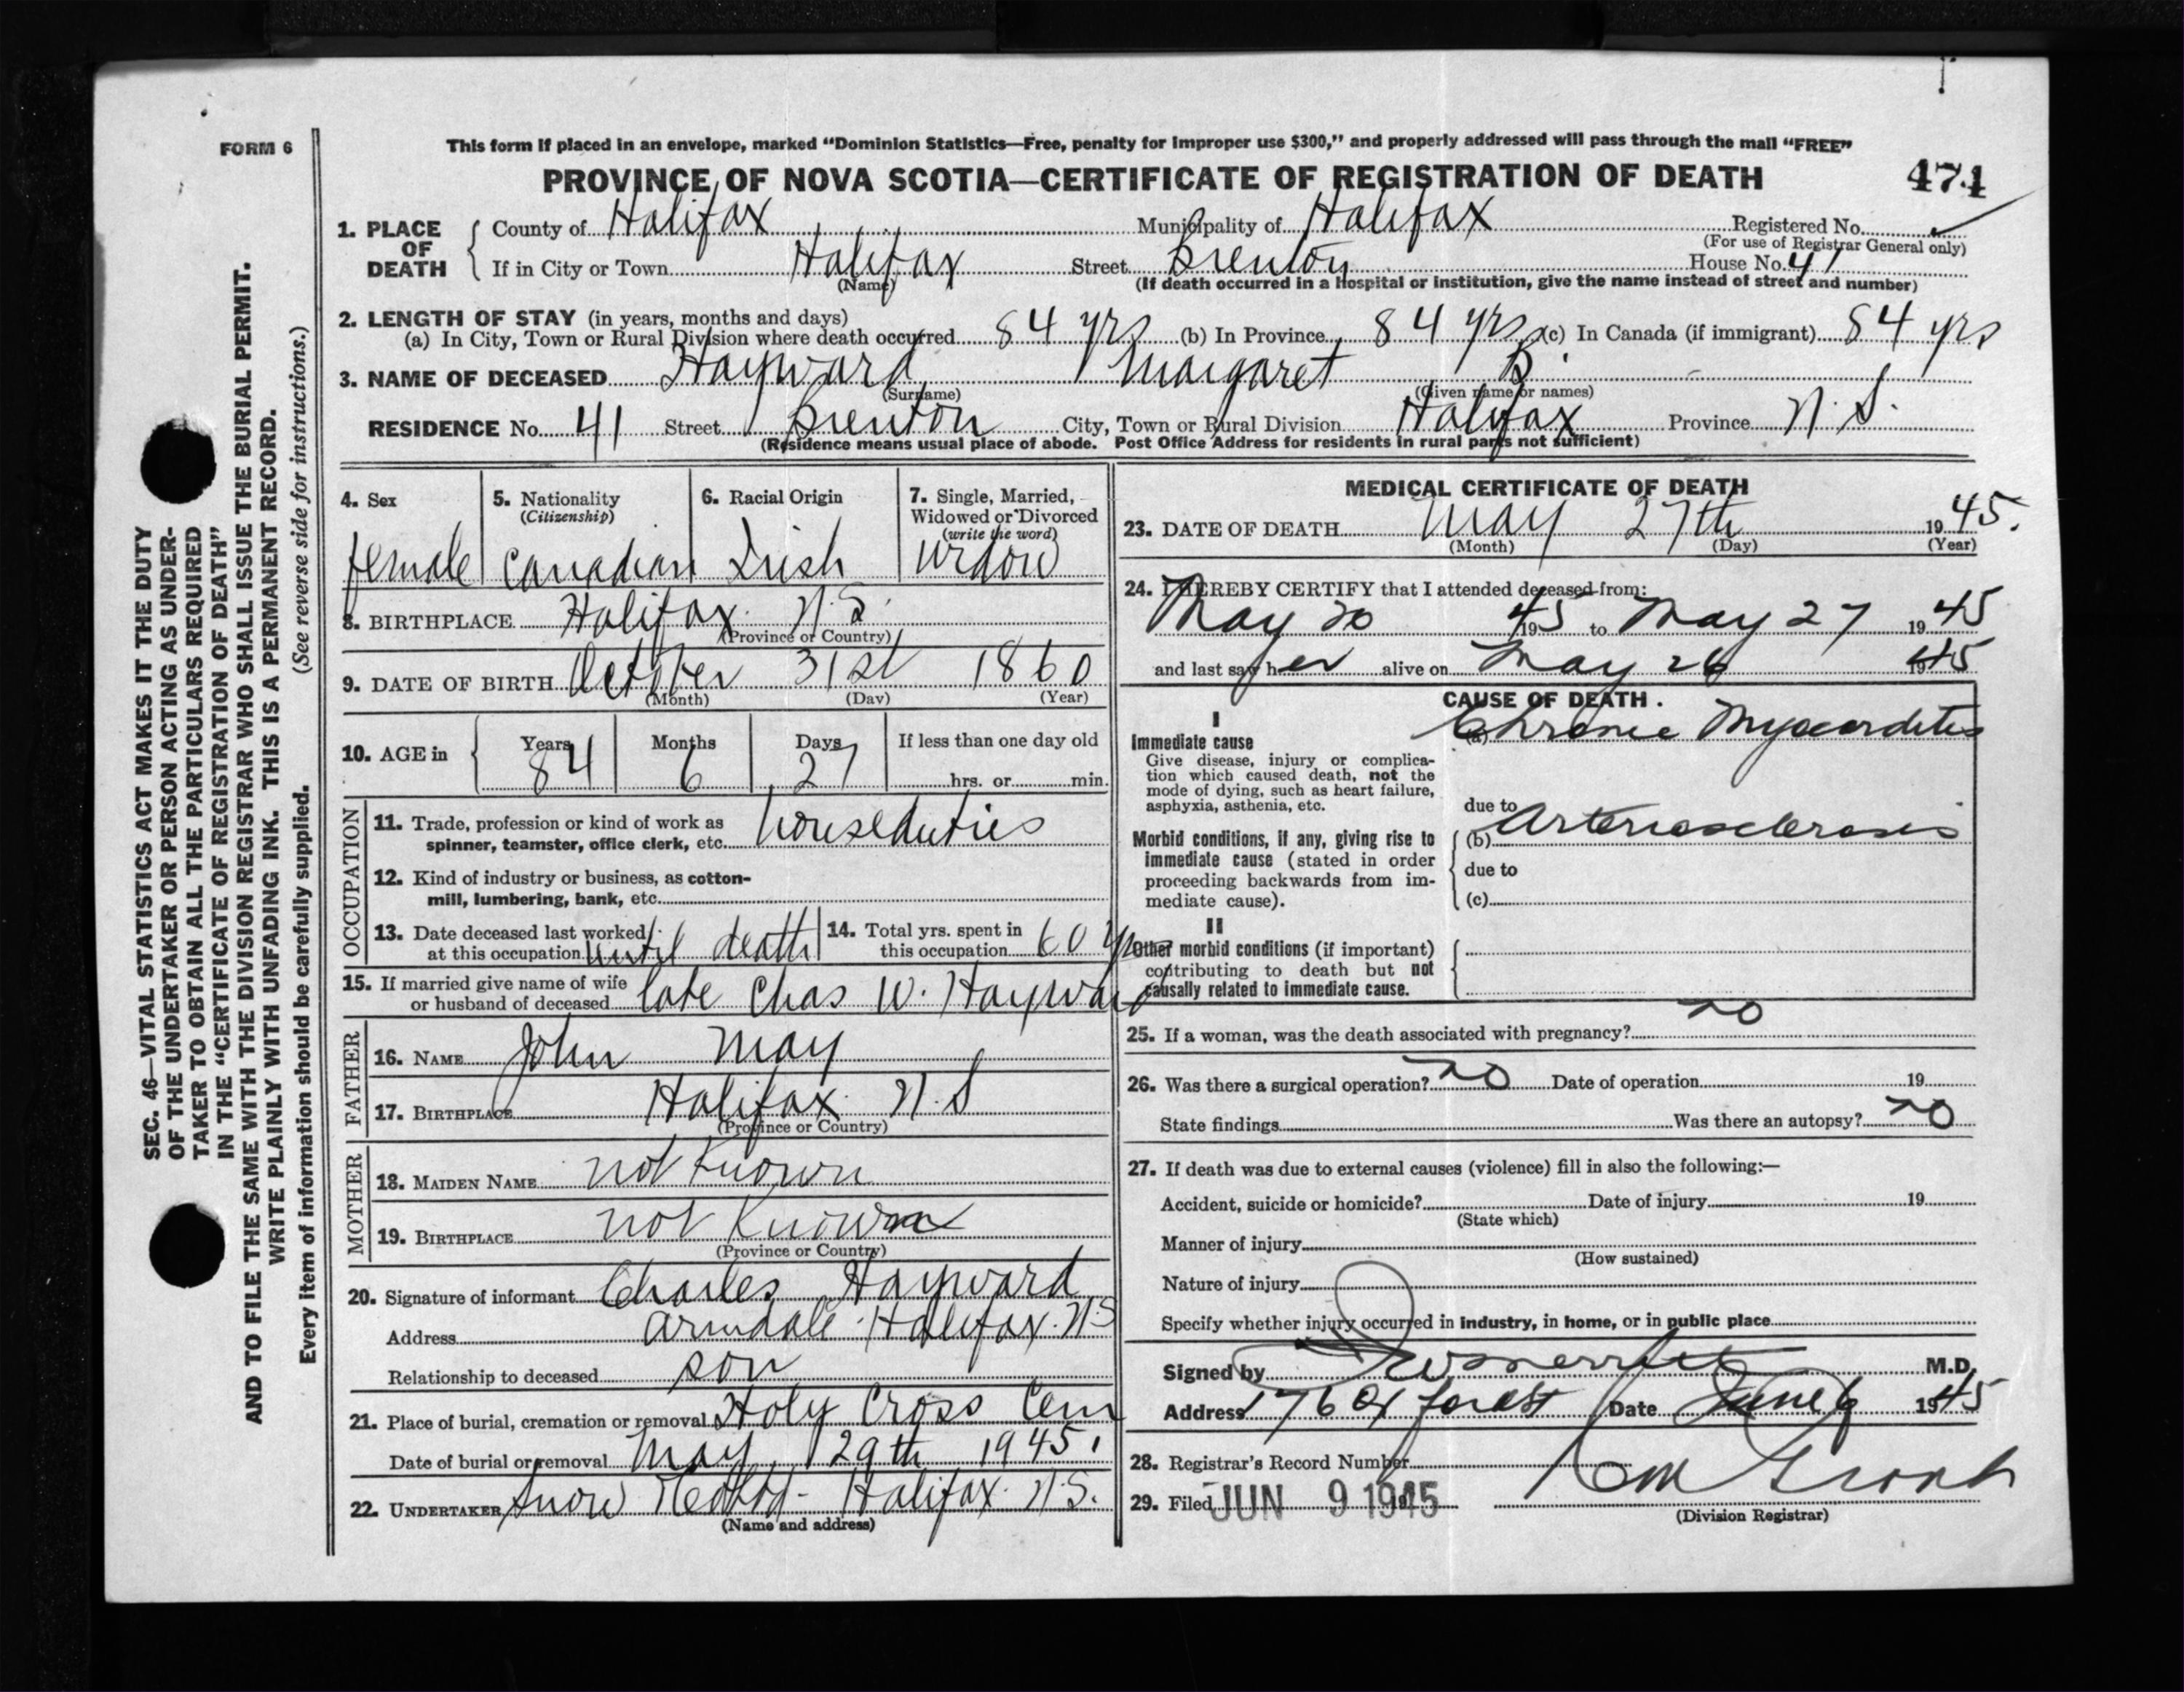 FORM 6
This form if placed in an envelope, marked “Dominion Statistics—Free, penalty for improper use $300,” and properly addressed will pass through the mail “FREE”
PROVINCE OF NOVA SCOTIA—CERTIFICATE OF REGISTRATION OF DEATH 474
1. PLACE OF DEATH
County of Halifax Municipality of Halifax Registered No.
(For use of Registrar General only)
If in City or Town Halifax Street Brenton House No. 41
(Name) (If death occurred in a Hospital or institution, give the name instead of street and number)
2. LENGTH OF STAY (in years, months and days)
(a) In City, Town or Rural Division where death occurred 84 yrs (b) In Province 84 yrs (c) In Canada (if immigrant) 84 yrs
3. NAME OF DECEASED Hayward Margaret B.
(Surname) (Given name or names)
RESIDENCE No. 41 Street Brenton City, Town or Rural Division Halifax Province N.S.
(Residence means usual place of abode. Post Office Address for residents in rural parts not sufficient)
4. Sex
female
5. Nationality
(Citizenship)
Canadian
6. Racial Origin
Irish
7. Single, Married,
Widowed or Divorced
(write the word)
widow
8. BIRTHPLACE Halifax N.S.
(Province or Country)
9. DATE OF BIRTH October 31st 1860
(Month) (Day) (Year)
10. AGE in
Years Months Days If less than one day old
84 6 27 hrs. or min.
OCCUPATION
11. Trade, profession or kind of work as
spinner, teamster, office clerk, etc. houseduties
12. Kind of industry or business, as cotton-
mill, lumbering, bank, etc.
13. Date deceased last worked
at this occupation until death
14. Total yrs. spent in
this occupation 60 yrs
15. If married give name of wife
or husband of deceased late Chas W. Hayward
FATHER
16. NAME John May
17. BIRTHPLACE Halifax N.S
(Province or Country)
MOTHER
18. MAIDEN NAME not Known
19. BIRTHPLACE not Known
(Province or Country)
20. Signature of informant Charles Hayward
Address Armdale Halifax N.S
Relationship to deceased son
21. Place of burial, cremation or removal Holy Cross Cem
Date of burial or removal May 29th 1945
22. UNDERTAKER Snow Halifax N.S.
(Name and address)
MEDICAL CERTIFICATE OF DEATH
23. DATE OF DEATH May 27th 1945.
(Month) (Day) (Year)
24. I HEREBY CERTIFY that I attended deceased from:
May 20 1945 to May 27 1945
and last saw her alive on May 26 1945
CAUSE OF DEATH.
I
Immediate cause
Give disease, injury or complica-
tion which caused death, not the
mode of dying, such as heart failure,
asphyxia, asthenia, etc.
(a) Chronic Myocarditis
due to
Morbid conditions, if any, giving rise to
immediate cause (stated in order
proceeding backwards from im-
mediate cause).
(b) Arteriosclerosis
due to
(c)
II
Other morbid conditions (if important)
contributing to death but not
causally related to immediate cause.
25. If a woman, was the death associated with pregnancy? no
26. Was there a surgical operation? no Date of operation 19
State findings Was there an autopsy? no
27. If death was due to external causes (violence) fill in also the following:—
Accident, suicide or homicide? Date of injury 19
(State which)
Manner of injury
(How sustained)
Nature of injury
Specify whether injury occurred in industry, in home, or in public place
Signed by M.D.
Address 176 Date June 6 1945
28. Registrar's Record Number
29. Filed JUN 9 1945
(Division Registrar)
SEC. 46—VITAL STATISTICS ACT MAKES IT THE DUTY
OF THE UNDERTAKER OR PERSON ACTING AS UNDER-
TAKER TO OBTAIN ALL THE PARTICULARS REQUIRED
IN THE “CERTIFICATE OF REGISTRATION OF DEATH”
AND TO FILE THE SAME WITH THE DIVISION REGISTRAR WHO SHALL ISSUE THE BURIAL PERMIT.
WRITE PLAINLY WITH UNFADING INK. THIS IS A PERMANENT RECORD.
Every item of information should be carefully supplied. (See reverse side for instructions.)